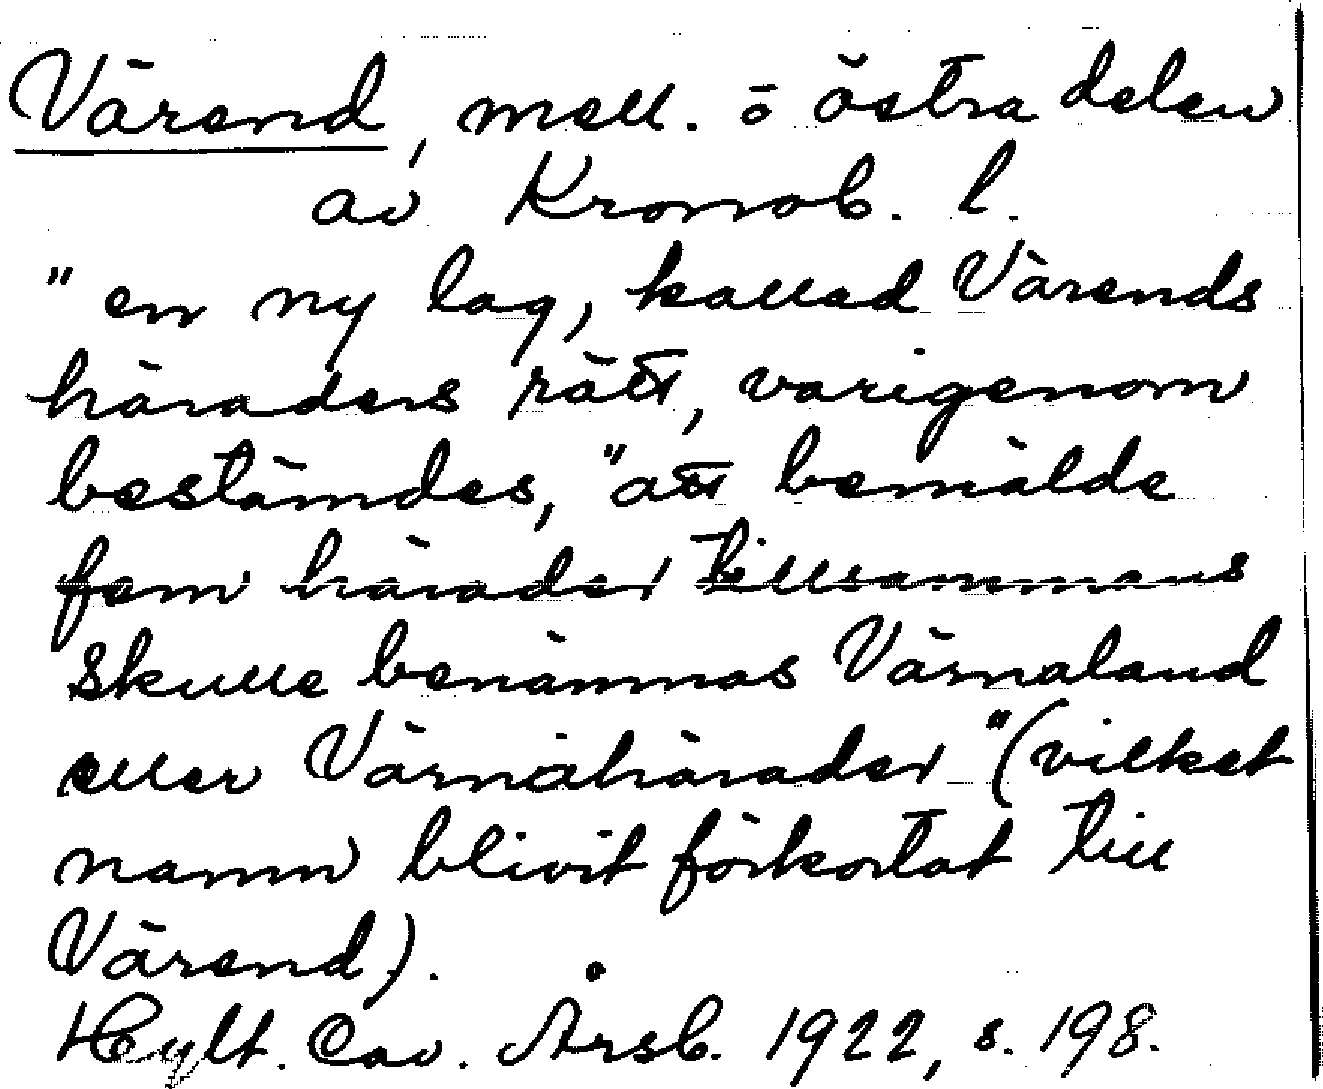 Värend, mell. o östra delen
av Kronob. l.
"en ny lag, kallad Värends
häraders rätt, varigenom
bestämdes, "att bemälde
fem härader tillsammans
skulle benämnas Värnaland
eller Värnahärader" (vilket
namn blivit förkortat till
Värend).
Hylt. Cav. Årsb. 1922, s. 198.